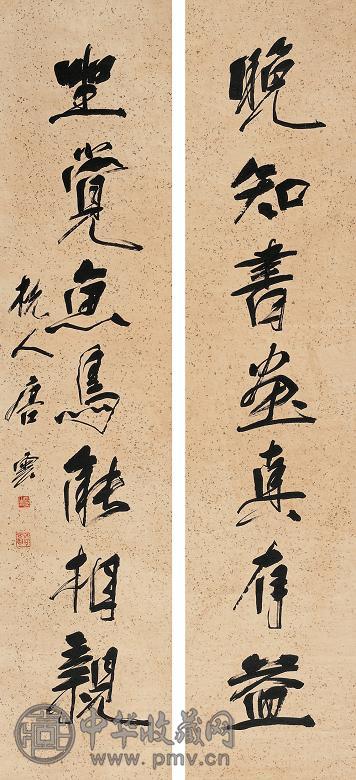 晚知書畫真有益
坐覺魚鳥能相親
杭人唐雲
中华收藏网
www.pmv.cn